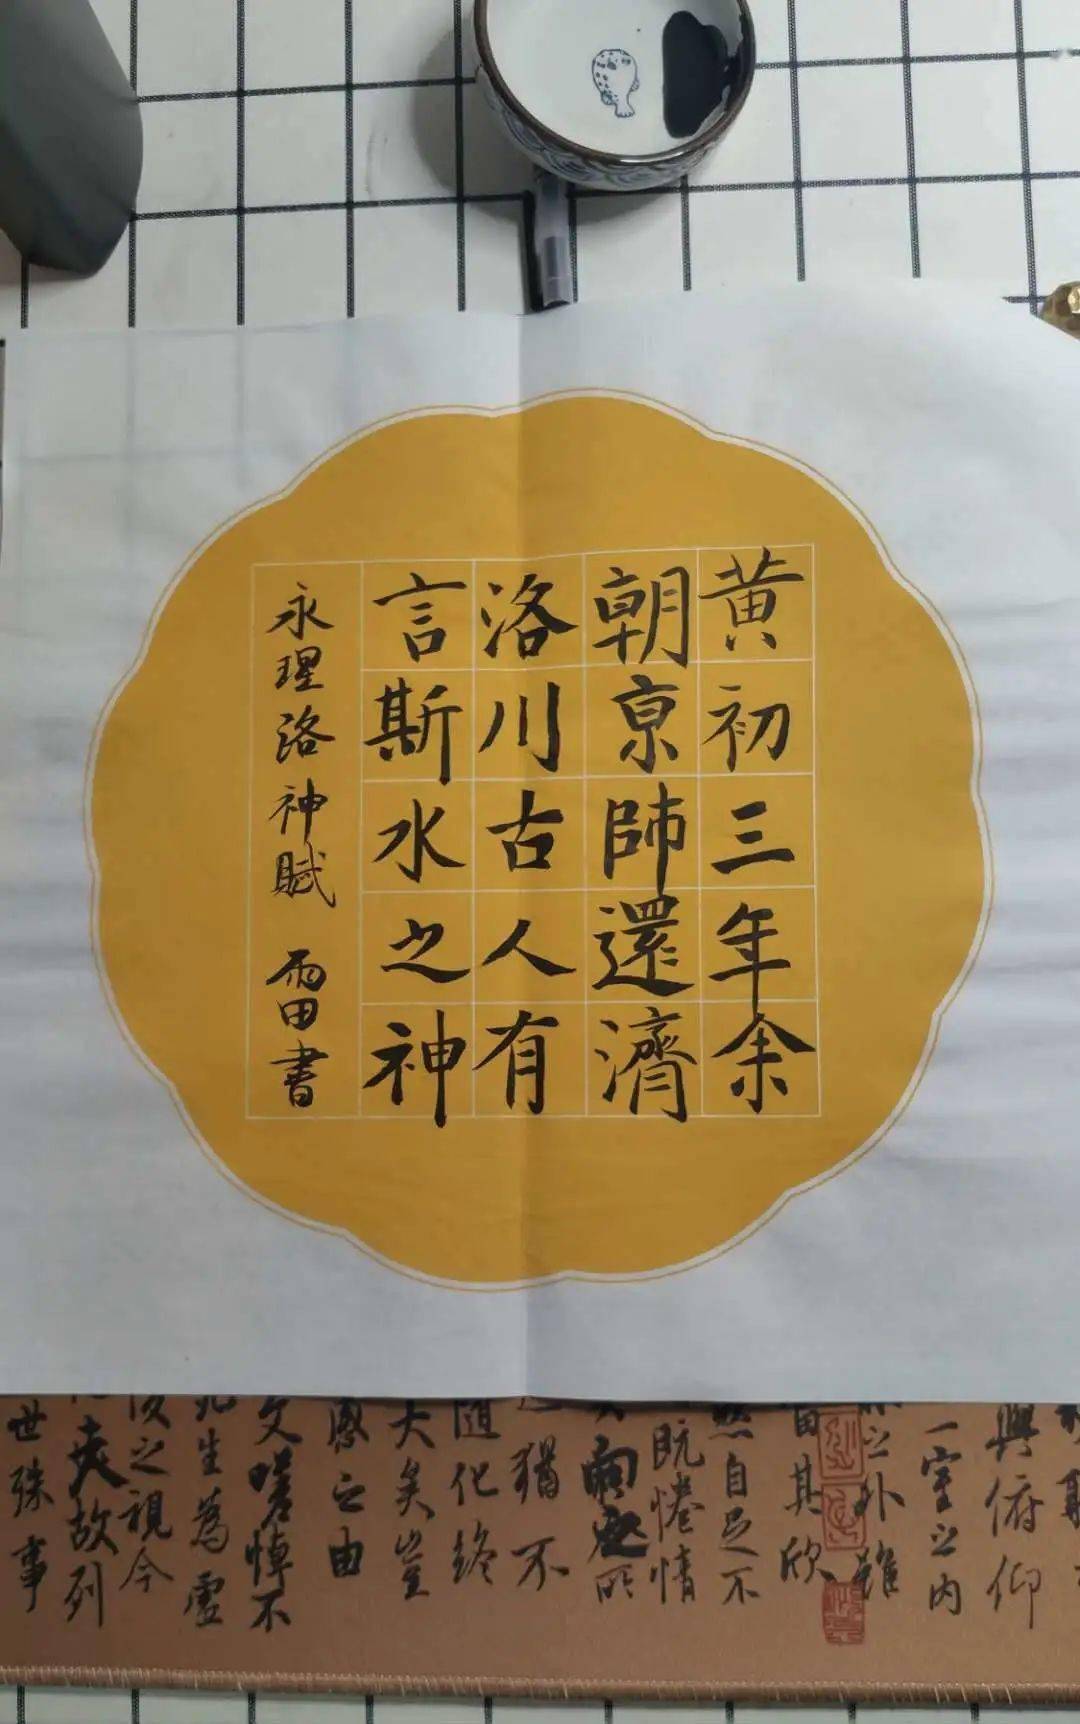 黄初三年余
朝京師還濟
洛川古人有
言斯水之神
永瑆洛神賦 雷書
興俯仰
一室之内
之外雖
其欣
然自足不
既惓情
猶不
隨化終
大矣豈
之由
文嗟悼不
死生為虛
後之視今
夫故列
世殊事